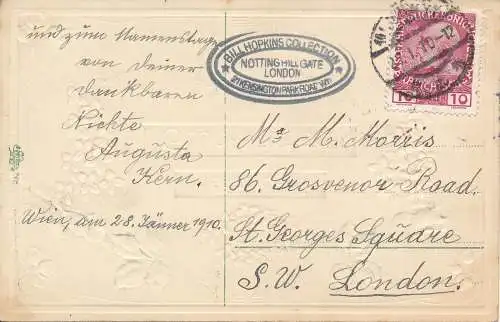 und zum Namenstag
von deiner
dankbaren
Nichte
Augusta
Kern.
Wien, am 28. Jänner 1910.
BILL HOPKINS COLLECTION
NOTTING HILL GATE
LONDON
21 KENSINGTON PARK ROAD W11
10 10
Ms M. Morris
86. Grosvenor Road.
St. Georges Square
S.W. London.